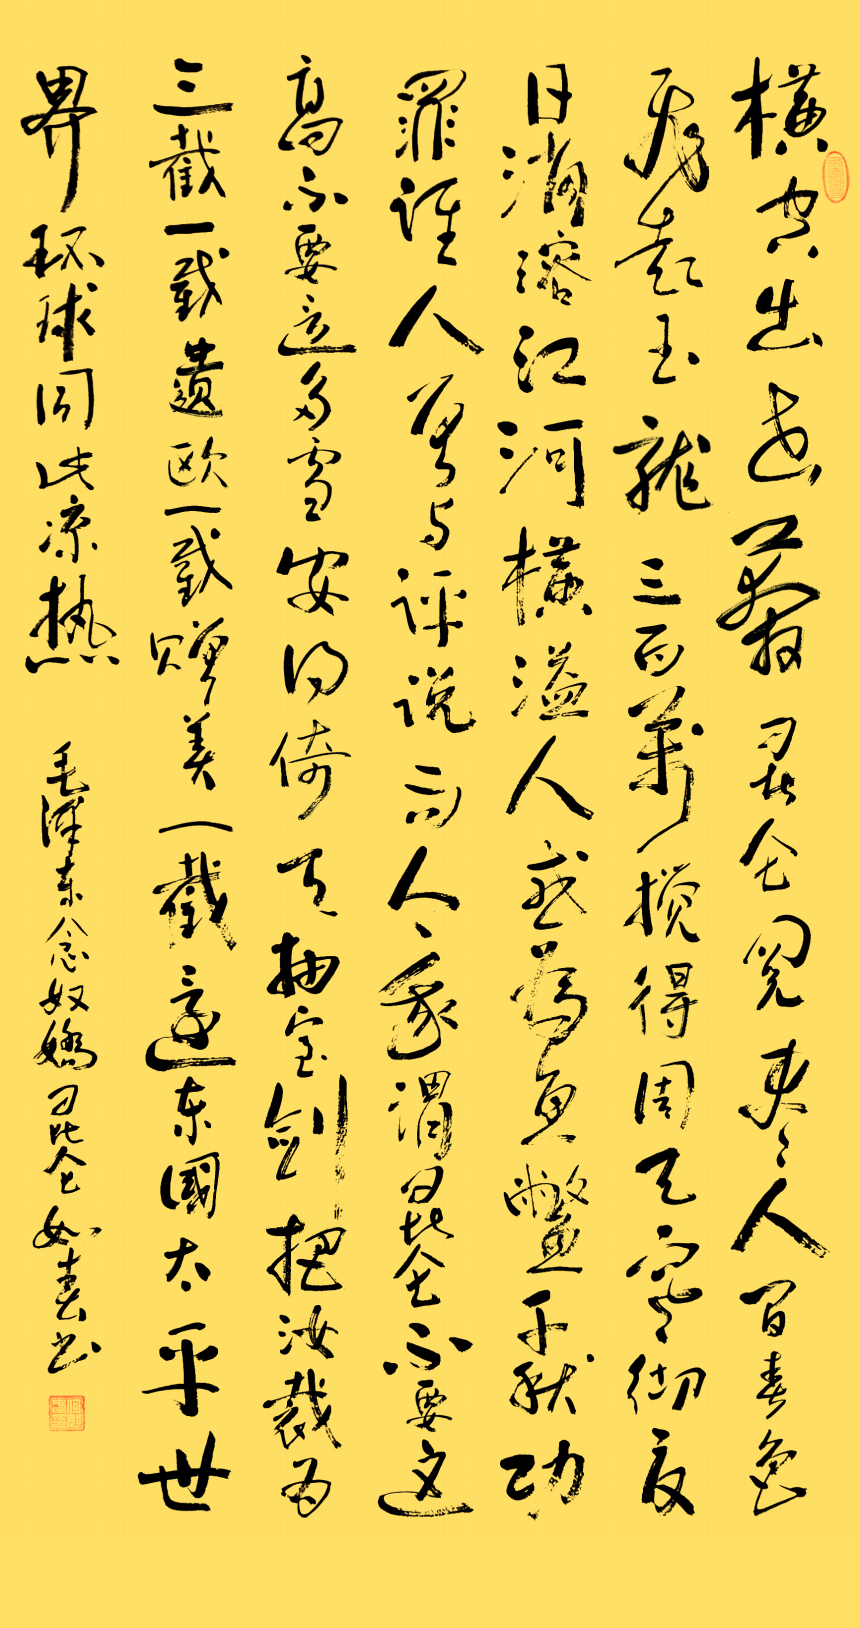 横空出世莽昆仑阅尽人间春色
飛起玉龍三百萬搅得周天寒彻夏
日消溶江河横溢人或為鱼鳖千秋功
罪谁人曾与评说而今我谓昆仑不要这
高不要这多雪安得倚天抽宝剑把汝裁为
三截一截遗欧一截赠美一截還东國太平世
界环球同此凉热
毛泽东念奴嬌昆仑如春书